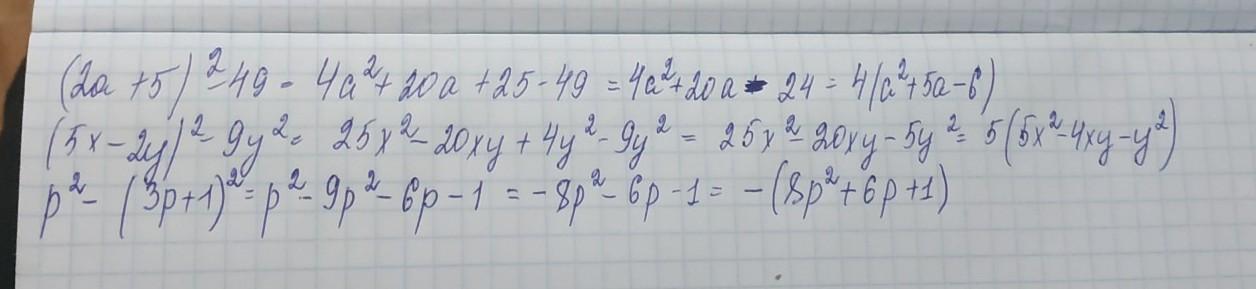 (2a+5)²-49 = 4a²+20a+25-49 = 4a²+20a-24 = 4(a²+5a-6)
(5x-2y)²-9y² = 25x²-20xy+4y²-9y² = 25x²-20xy-5y² = 5(5x²-4xy-y²)
p²-(3p+1)² = p²-9p²-6p-1 = -8p²-6p-1 = -(8p²+6p+1)